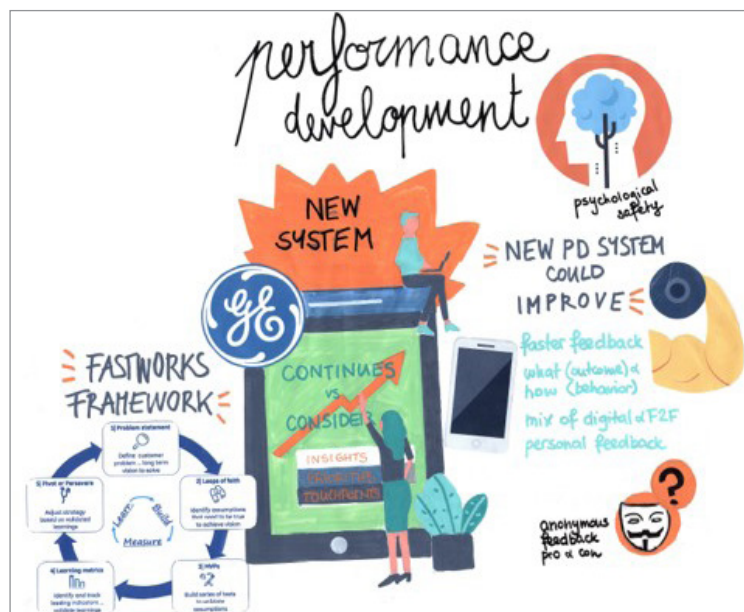 performance
development
psychological
safety
NEW
SYSTEM
NEW PD SYSTEM
COULD
IMPROVE
GE
faster feedback
what (outcome) &
how (behavior)
mix of digital & F2F
personal feedback
FASTWORKS
FRAMEWORK
CONTINUES
VS
CONSIDER
INSIGHTS
PRIORITIES
TOUCHPOINTS
1) Problem statement
Define customer
problem ... long term
vision to solve
2) Leaps of faith
Identify assumptions
that need to be true
to achieve vision
3) MVPs
Build series of tests
to validate
assumptions
4) Learning metrics
Identify and track
leading indicators ...
validate learnings
5) Pivot or Persevere
Adjust strategy
based on validated
learnings
Learn
Build
Measure
?
anonymous
feedback
pro & con